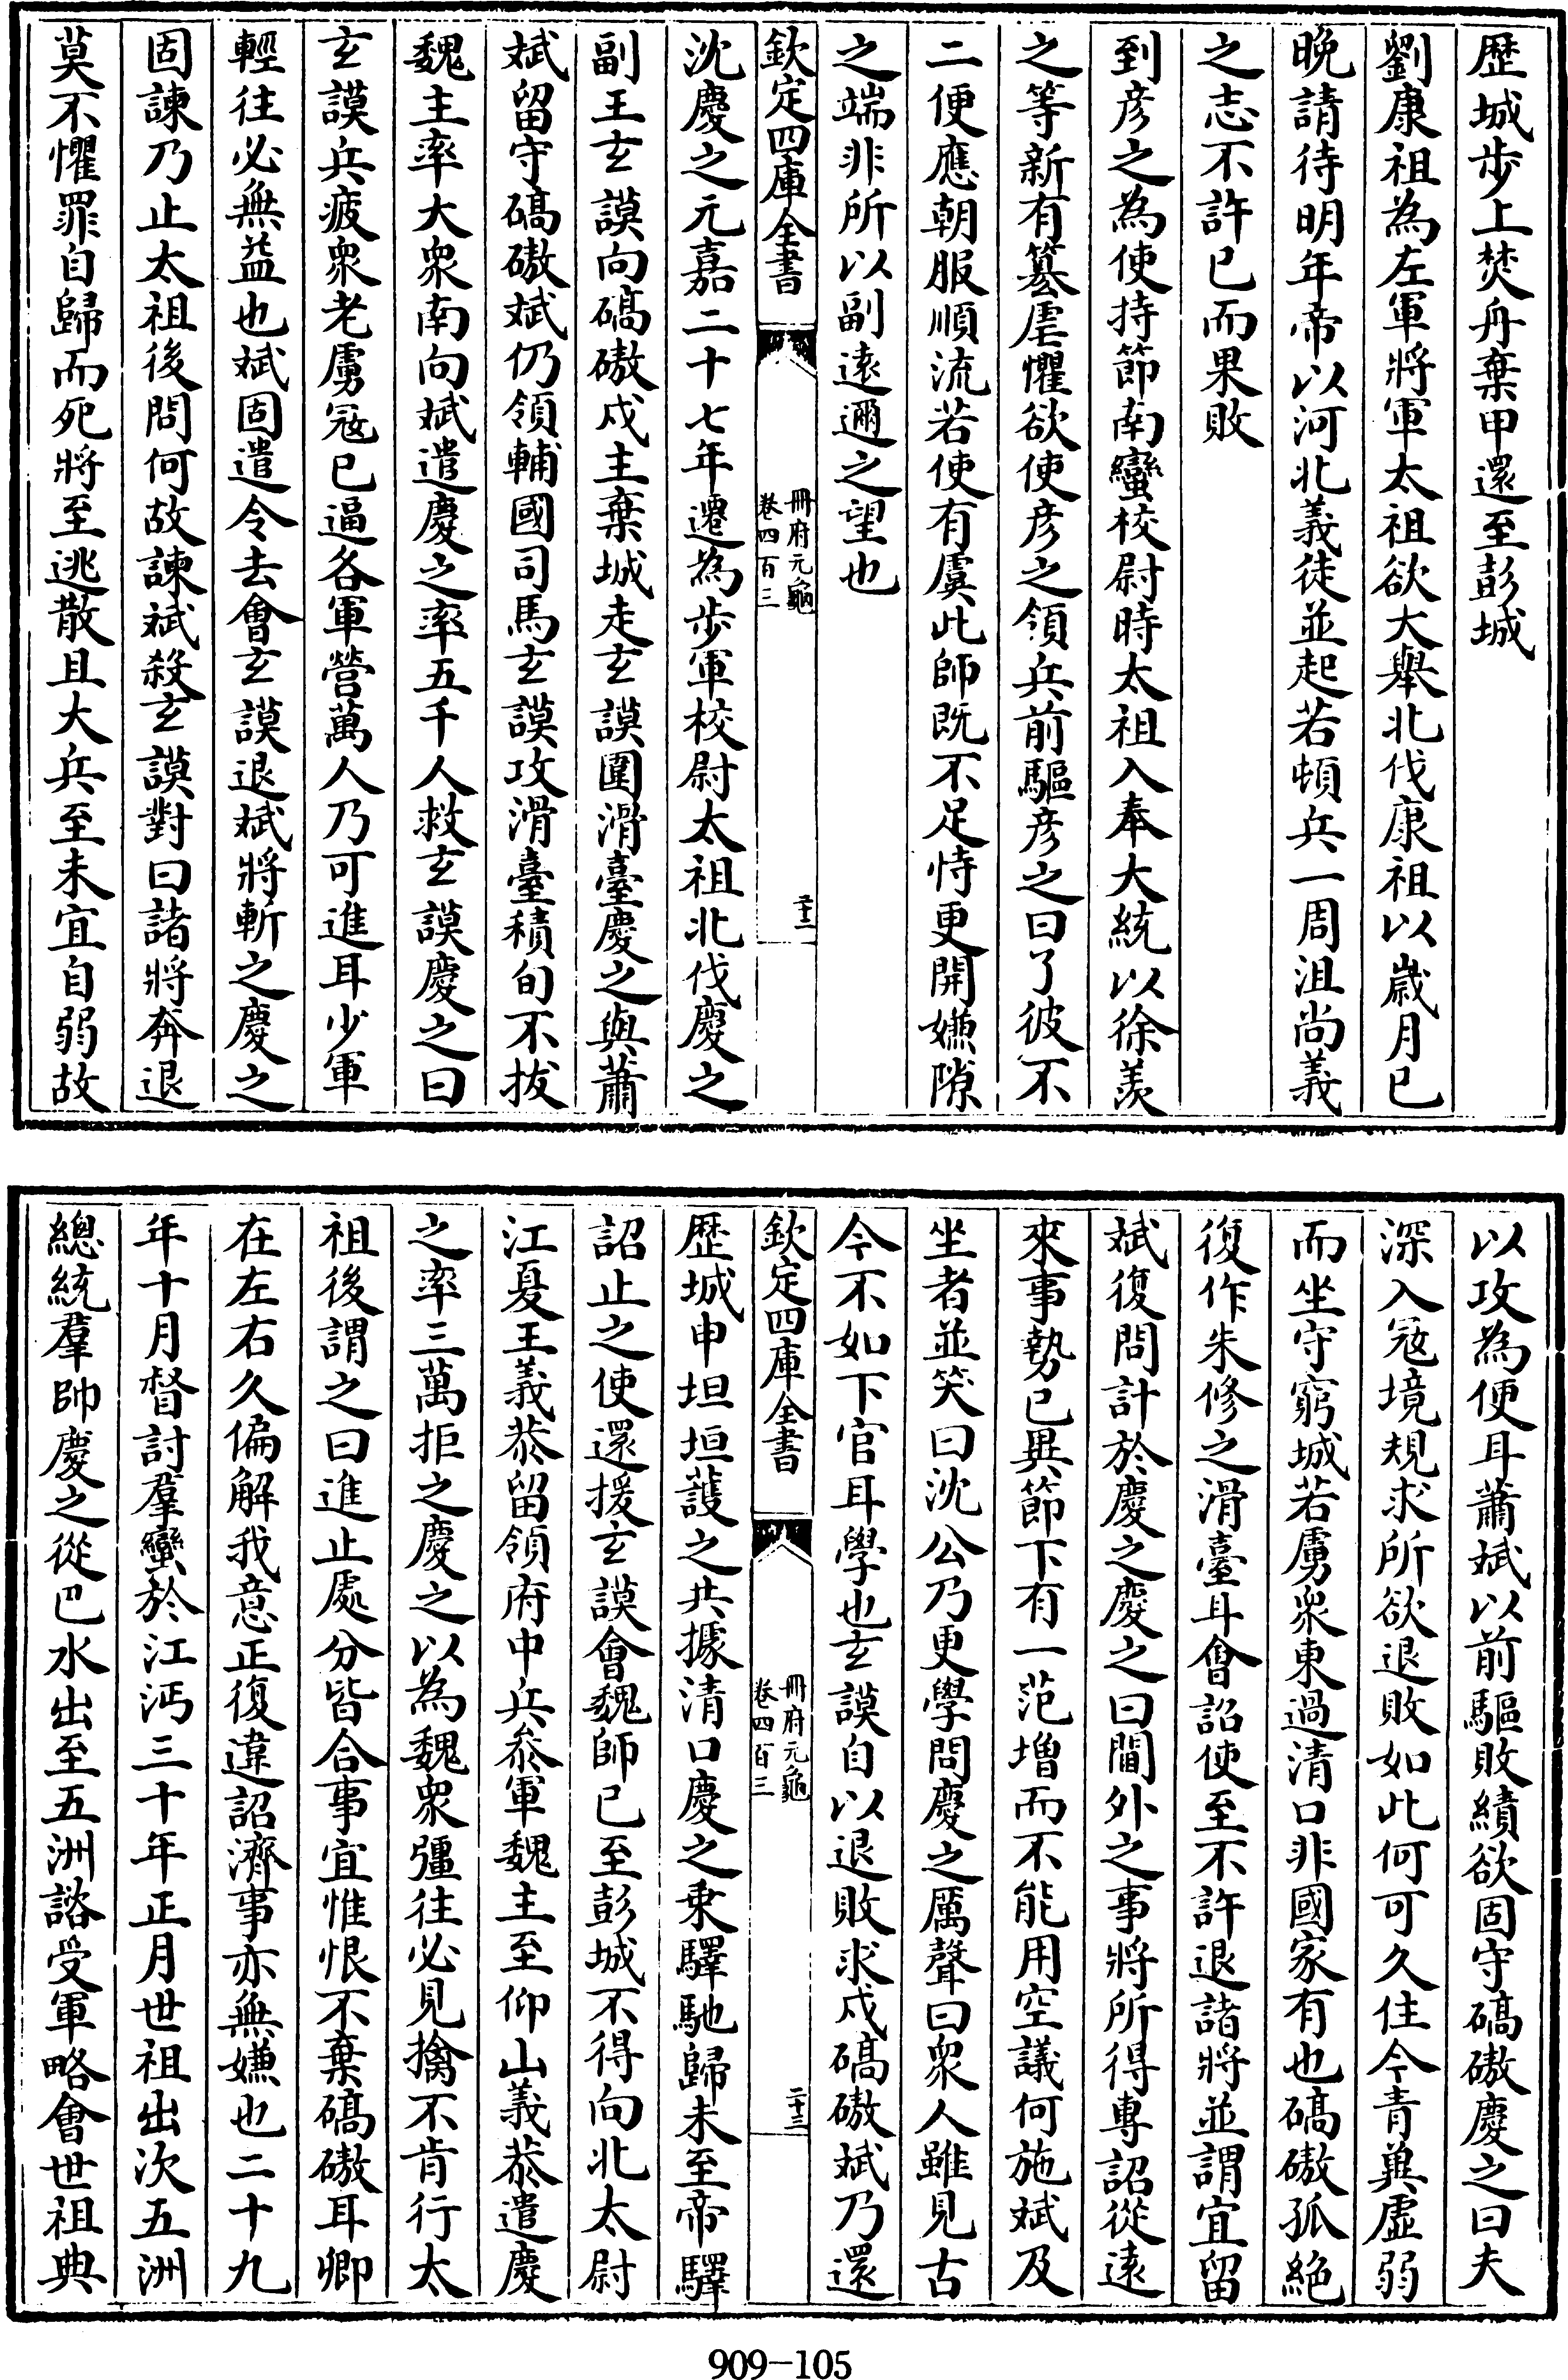 歴城步上焚舟棄甲還至彭城
劉康祖為左軍將軍太祖欲大舉北伐康祖以歲月已
晚請待明年帝以河北義徒並起若頓兵一周沮尚義
之志不許已而果敗
到彦之為使持節南蠻校尉時太祖入奉大統以徐羨
之等新有簒虐懼欲使彦之領兵前驅彦之曰了彼不
二便應朝服順流若使有虞此師既不足恃更開嫌隙
之端非所以副逺邇之望也
欽定四庫全書
冊府元龜
卷四百三
二十二
沈慶之元嘉二十七年遷為步軍校尉太祖北伐慶之
副王玄謨向碻磝戍主棄城走玄謨圍滑臺慶之與蕭
斌留守碻磝斌仍領輔國司馬玄謨攻滑臺積旬不拔
魏主率大衆南向斌遣慶之率五千人救玄謨慶之曰
玄謨兵疲衆老虜冦已逼各軍營萬人乃可進耳少軍
輕往必無益也斌固遣令去會玄謨退斌將斬之慶之
固諫乃止太祖後問何故諫斌殺玄謨對曰諸將奔退
莫不懼罪自歸而死將至逃散且大兵至未宜自弱故
以攻為便耳蕭斌以前驅敗績欲固守碻磝慶之曰夫
深入冦境規求所欲退敗如此何可久住今青兾虛弱
而坐守窮城若虜衆東過清口非國家有也碻磝孤絶
復作朱修之滑臺耳會詔使至不許退諸將並謂宜留
斌復問計於慶之慶之曰閫外之事將所得專詔從逺
來事勢已異節下有一范増而不能用空議何施斌及
坐者並笑曰沈公乃更學問慶之厲聲曰衆人雖見古
今不如下官耳學也玄謨自以退敗求戍碻磝斌乃還
欽定四庫全書
冊府元龜
卷四百三
二十三
歴城申坦垣護之共據清口慶之乗驛馳歸未至帝驛
詔止之使還援玄謨會魏師已至彭城不得向北太尉
江夏王義恭留領府中兵叅軍魏主至仰山義恭遣慶
之率三萬拒之慶之以為魏衆彊往必見擒不肯行太
祖後謂之曰進止處分皆合事宜惟恨不棄碻磝耳卿
在左右久偏解我意正復違詔濟事亦無嫌也二十九
年十月督討羣蠻於江沔三十年正月世祖出次五洲
總統羣帥慶之從巴水出至五洲諮受軍略會世祖典
909-105